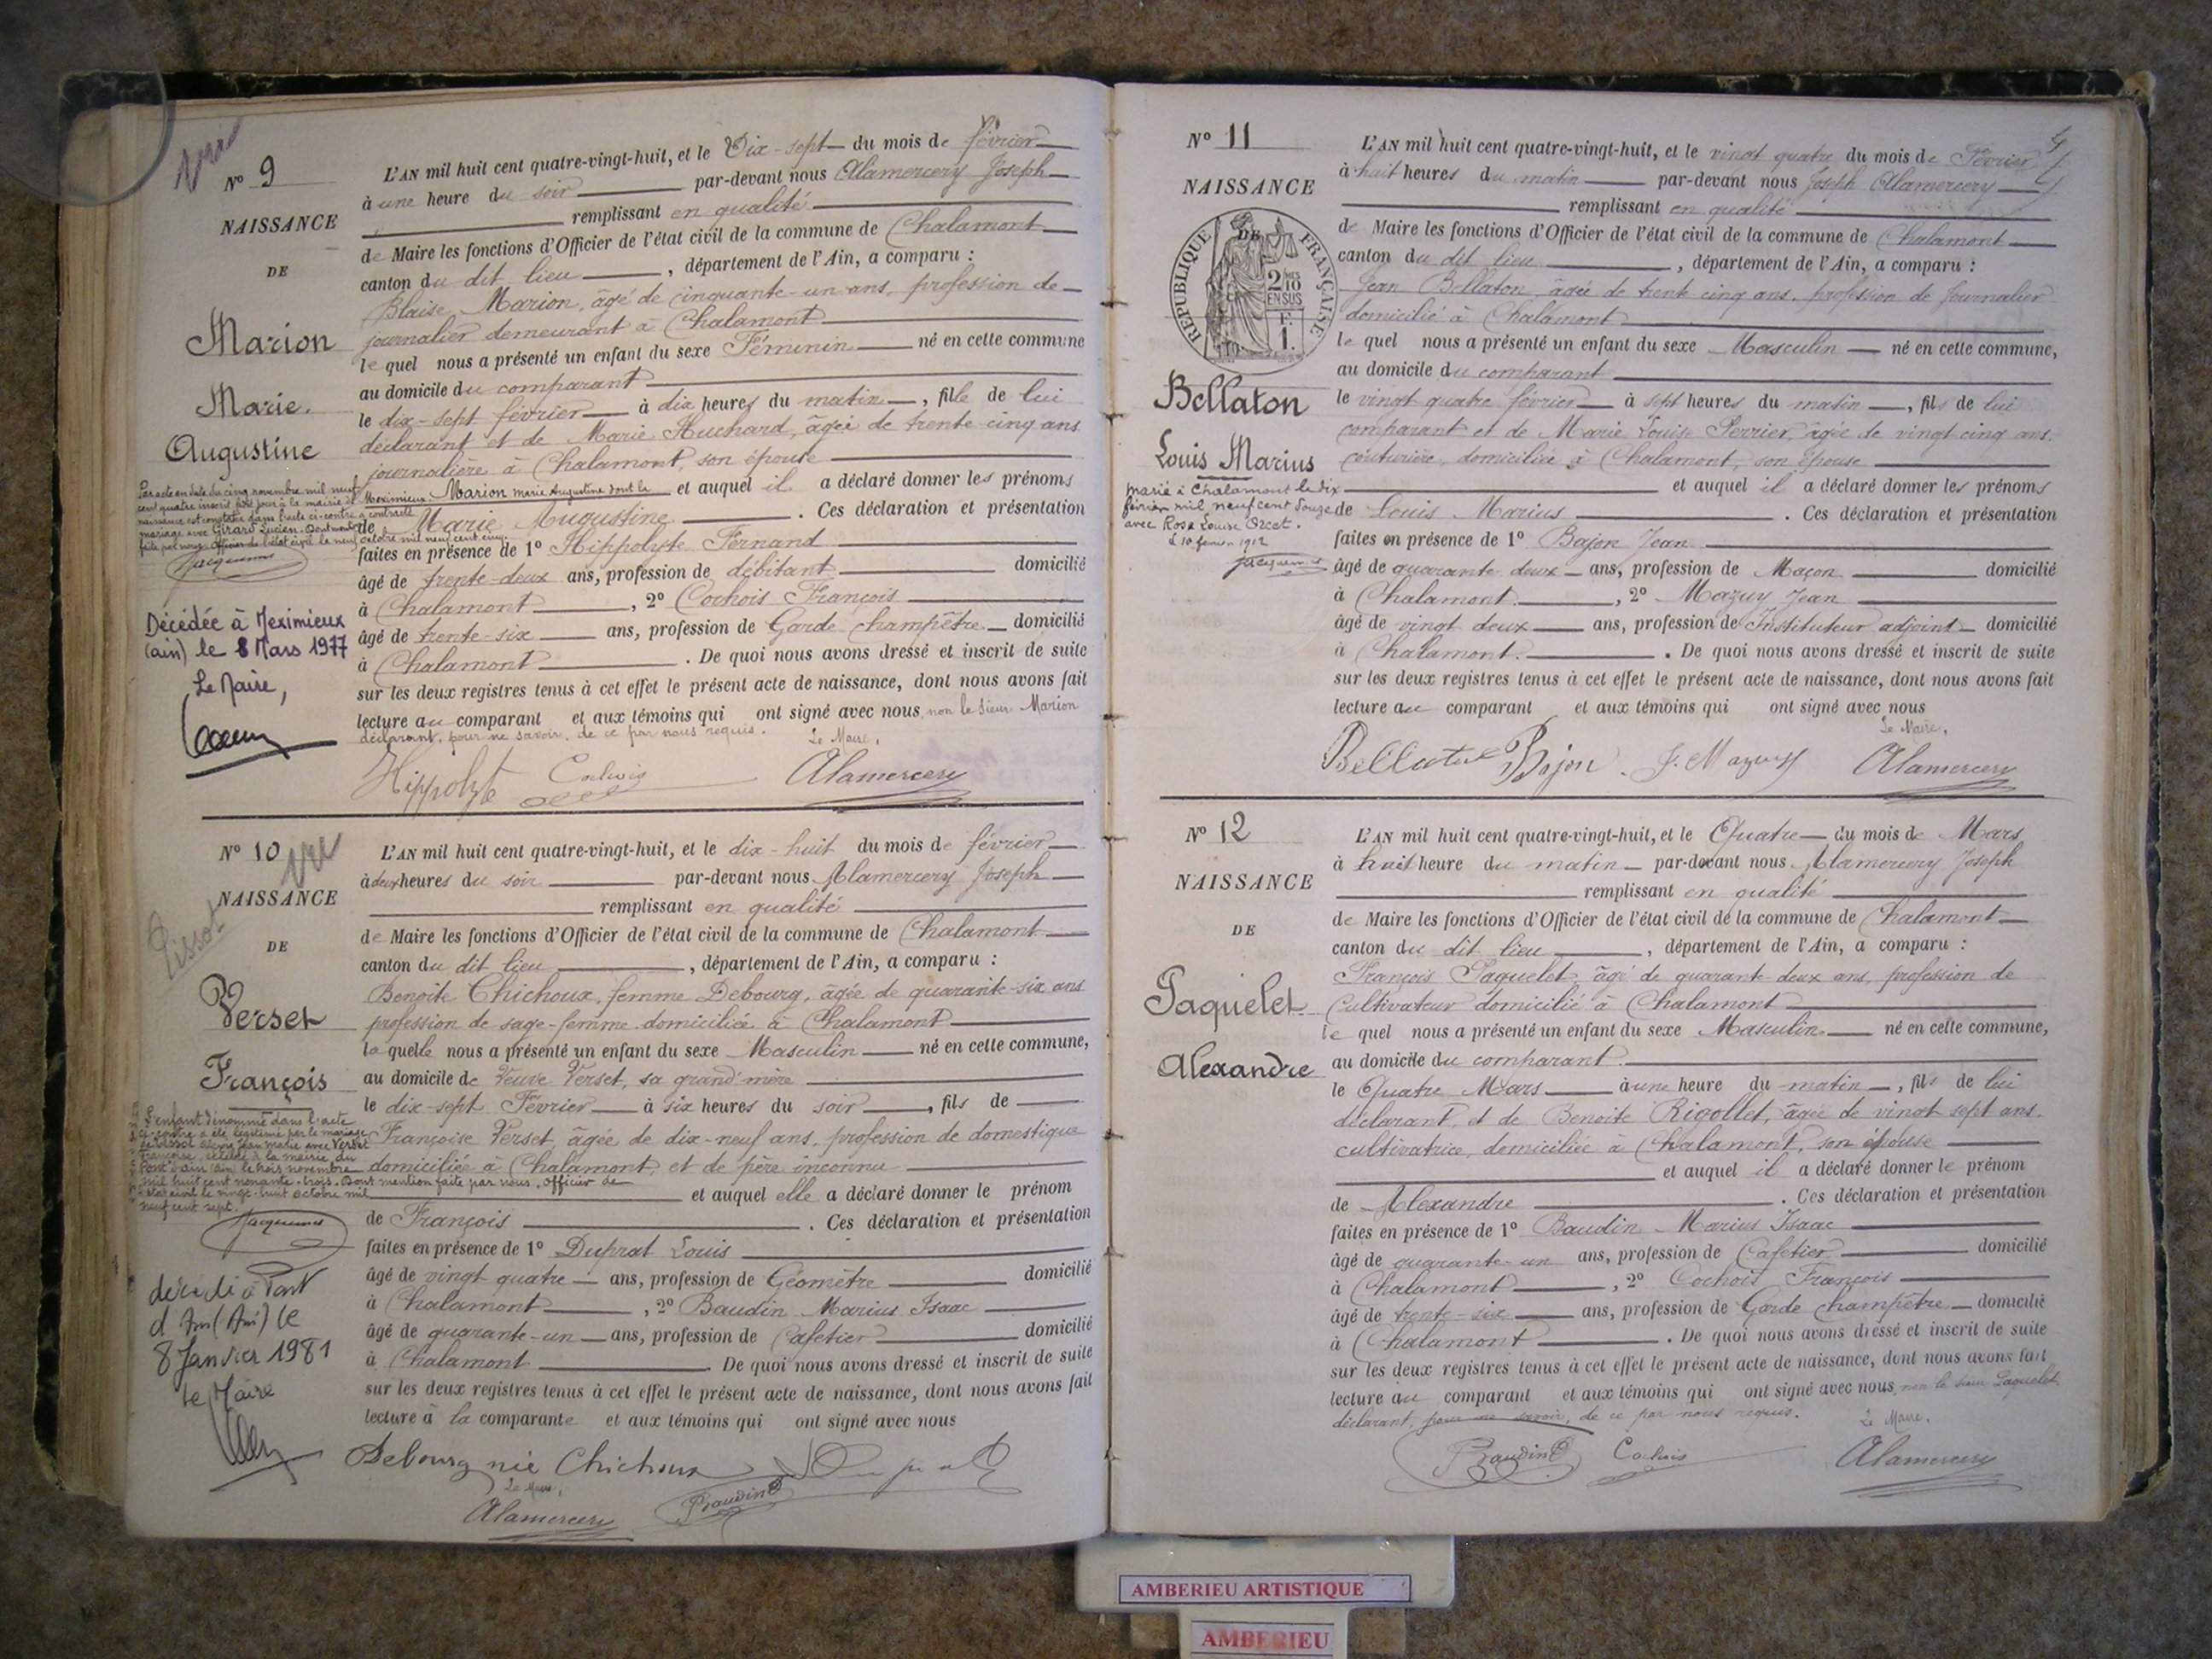 Nº 9
NAISSANCE
DE
Marion
Marie
Augustine
L'AN mil huit cent quatre-vingt-huit, et le Dix-sept du mois de février
à une heure du soir par-devant nous Alamercery Joseph
remplissant en qualité
de Maire les fonctions d'Officier de l'état civil de la commune de Chalamont
canton du dit lieu, département de l'Ain, a comparu :
Blaise Marion, âgé de cinquante-un ans, profession de
journalier demeurant à Chalamont
le quel nous a présenté un enfant du sexe Féminin né en cette commune
au domicile du comparant
le dix-sept février à dix heures du matin, fille de lui
déclarant et de Marie Huchard, âgée de trente-cinq ans
journalière à Chalamont, son épouse
et auquel il a déclaré donner les prénoms
de Marie Augustine. Ces déclaration et présentation
faites en présence de 1º Hippolyte Fernand
âgé de trente-deux ans, profession de débitant domicilié
à Chalamont, 2º Cochois François
âgé de trente-six ans, profession de Garde champêtre domicilié
à Chalamont. De quoi nous avons dressé et inscrit de suite
sur les deux registres tenus à cet effet le présent acte de naissance, dont nous avons fait
lecture au comparant et aux témoins qui ont signé avec nous, non le sieur Marion
déclarant, pour ne savoir, de ce par nous requis. Le Maire,
Hippolyte Cochois Alamercery
Par acte en date du cinq novembre mil neuf
cent quatre inscrit le dit jour à la mairie de Meximieux, Marion Marie Augustine dont la
naissance est constatée dans l'acte ci-contre a contracté
mariage avec Girard Lucien. Dont mention
faite par nous Officier de l'état civil le neuf octobre mil neuf cent cinq.
Jacquemes
Décédée à Meximieux
(ain) le 8 Mars 1977
Le Maire,
Nº 10
NAISSANCE
DE
Pissot
Verset
François
L'AN mil huit cent quatre-vingt-huit, et le dix-huit du mois de février
à deux heures du soir par-devant nous Alamercery Joseph
remplissant en qualité
de Maire les fonctions d'Officier de l'état civil de la commune de Chalamont
canton du dit lieu, département de l'Ain, a comparu :
Benoite Chichoux, femme Debourg, âgée de quarante-six ans
profession de sage-femme domiciliée à Chalamont
la quelle nous a présenté un enfant du sexe Masculin né en cette commune,
au domicile de Veuve Verset, sa grand'mère
le dix-sept Février à six heures du soir, fils de
Françoise Verset, âgée de dix-neuf ans, profession de domestique
domiciliée à Chalamont, et de père inconnu
et auquel elle a déclaré donner le prénom
de François. Ces déclaration et présentation
faites en présence de 1º Duprat Louis
âgé de vingt quatre ans, profession de Géomètre domicilié
à Chalamont, 2º Baudin Marius Isaac
âgé de quarante-un ans, profession de Cafetier domicilié
à Chalamont. De quoi nous avons dressé et inscrit de suite
sur les deux registres tenus à cet effet le présent acte de naissance, dont nous avons fait
lecture à la comparante et aux témoins qui ont signé avec nous
Debourg née Chichoux Duprat
Le Maire,
Alamercery Baudin
L'enfant dénommé dans l'acte
ci-contre a été légitimé par le mariage
Jean Marie avec Verset
Françoise, célébré à la mairie de
Pont d'ain (ain) le trois novembre
mil huit cent nonante-trois. Dont mention faite par nous, officier de
l'état civil le vingt-huit octobre mil
neuf cent sept.
Jacquemes
décédé à Pont
d'Ain (Ain) le
8 Janvier 1981
le Maire
Nº 11
NAISSANCE
RÉPUBLIQUE FRANÇAISE
DE
2/10
EN SUS
F.
1.
Bellaton
Louis Marius
L'AN mil huit cent quatre-vingt-huit, et le vingt quatre du mois de Février
à huit heures du matin par-devant nous Joseph Alamercery
remplissant en qualité
de Maire les fonctions d'Officier de l'état civil de la commune de Chalamont
canton du dit lieu, département de l'Ain, a comparu :
Jean Bellaton âgée de trente cinq ans, profession de journalier
domicilié à Chalamont
le quel nous a présenté un enfant du sexe Masculin né en cette commune,
au domicile du comparant
le vingt quatre février à sept heures du matin, fils de lui
comparant et de Marie Louise Perrier, âgée de vingt cinq ans.
couturière, domiciliée à Chalamont, son épouse
et auquel il a déclaré donner les prénoms
de Louis Marius. Ces déclaration et présentation
faites en présence de 1º Bajon Jean
âgé de quarante deux ans, profession de Maçon domicilié
à Chalamont, 2º Mazuy Jean
âgé de vingt deux ans, profession de Instituteur adjoint domicilié
à Chalamont. De quoi nous avons dressé et inscrit de suite
sur les deux registres tenus à cet effet le présent acte de naissance, dont nous avons fait
lecture au comparant et aux témoins qui ont signé avec nous
Le Maire,
Bellaton Bajon J. Mazuy Alamercery
marié à Chalamont le dix
février mil neuf cent douze
avec Rose Louise Orcet.
le 10 février 1912
Jacquemes
Nº 12
NAISSANCE
DE
Paquelet
Alexandre
L'AN mil huit cent quatre-vingt-huit, et le Quatre du mois de Mars
à huit heure du matin par-devant nous Alamercery Joseph
remplissant en qualité
de Maire les fonctions d'Officier de l'état civil de la commune de Chalamont
canton du dit lieu, département de l'Ain, a comparu :
François Paquelet âgé de quarante-deux ans, profession de
Cultivateur domicilié à Chalamont
le quel nous a présenté un enfant du sexe Masculin né en cette commune,
au domicile du comparant
le Quatre Mars à une heure du matin, fils de lui
déclarant, et de Benoite Rigollet, âgée de vingt sept ans.
cultivatrice, domiciliée à Chalamont, son épouse
et auquel il a déclaré donner le prénom
de Alexandre. Ces déclaration et présentation
faites en présence de 1º Baudin Marius Isaac
âgé de quarante-un ans, profession de Cafetier domicilié
à Chalamont, 2º Cochois François
âgé de trente-six ans, profession de Garde champêtre domicilié
à Chalamont. De quoi nous avons dressé et inscrit de suite
sur les deux registres tenus à cet effet le présent acte de naissance, dont nous avons fait
lecture au comparant et aux témoins qui ont signé avec nous, non le sieur Paquelet
déclarant, pour ne savoir, de ce par nous requis. Le Maire,
Baudin Cochois Alamercery
AMBERIEU ARTISTIQUE
AMBERIEU